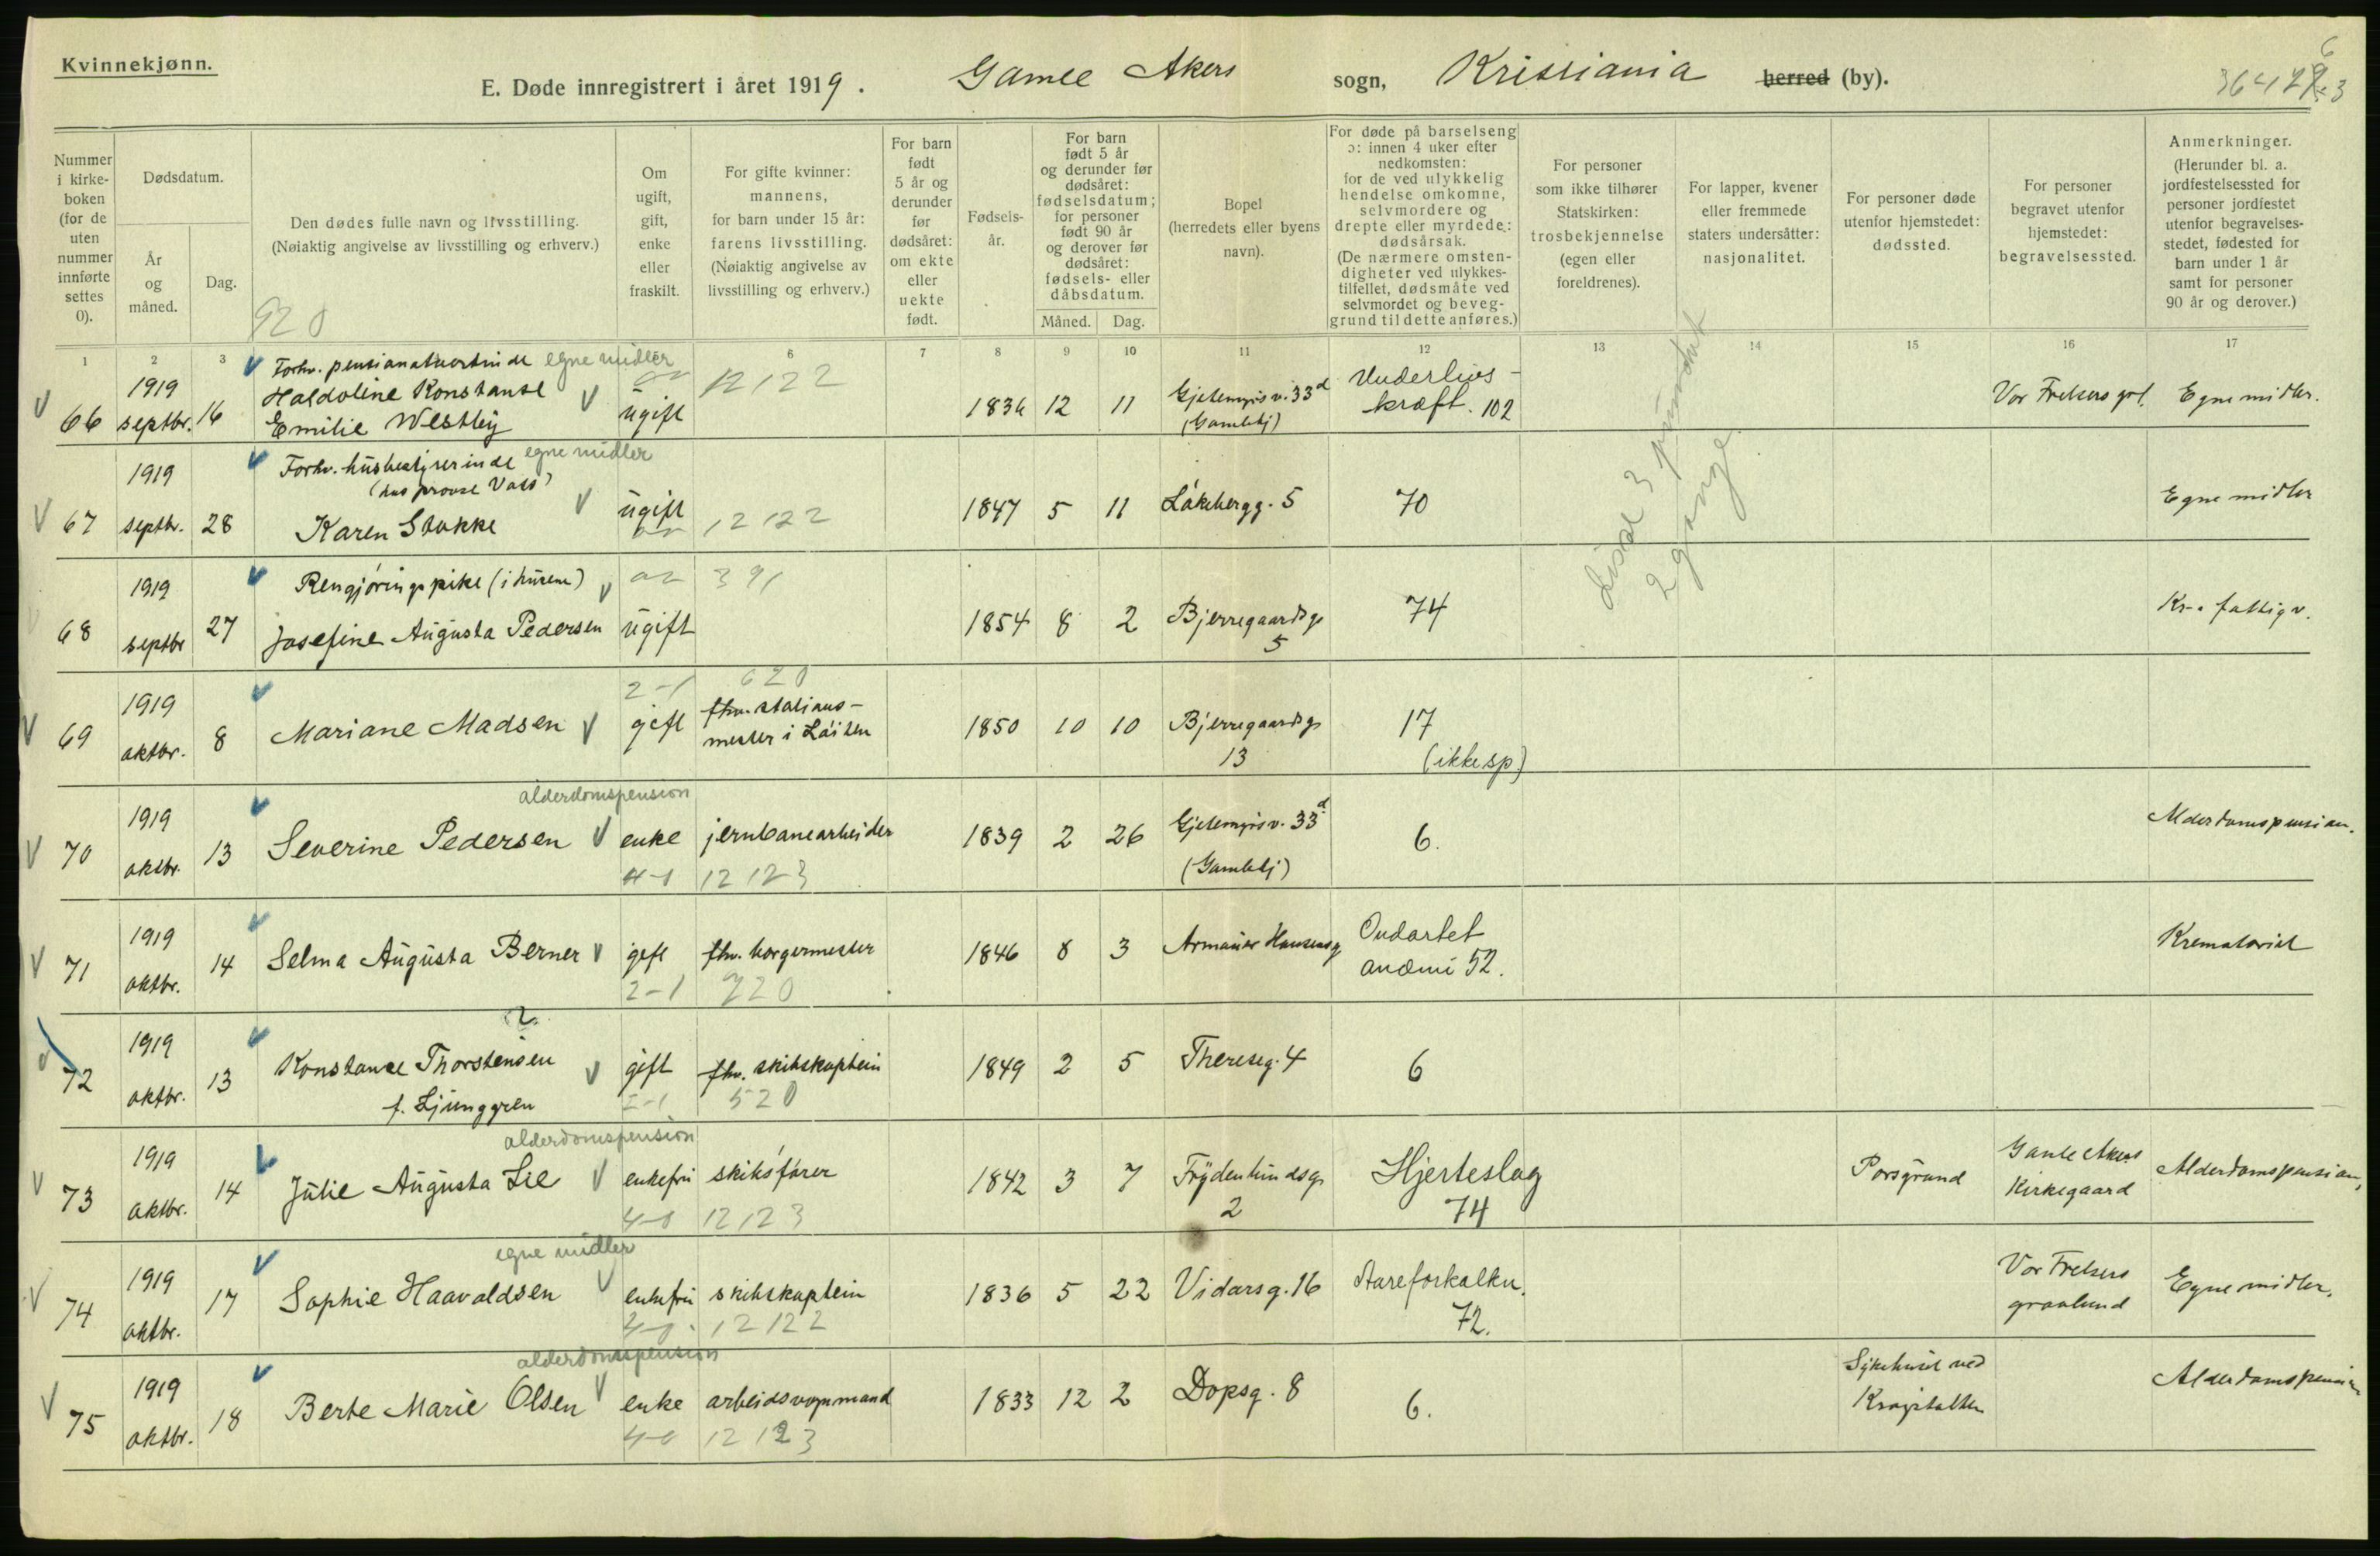 Kvinnekjønn.
E. Døde innregistrert i året 1919. Gamle Akers sogn, Kristiania herred (by).
Nummer i kirkeboken (for de uten nummer innførte settes 0).
Dødsdatum.
År og måned.
Dag.
Den dødes fulle navn og livsstilling. (Nøiaktig angivelse av livsstilling og erhverv.)
920
Om ugift, gift, enke eller fraskilt.
For gifte kvinner: mannens, for barn under 15 år: farens livsstilling. (Nøiaktig angivelse av livsstilling og erhverv.)
For barn født 5 år og derunder før dødsåret: om ekte eller uekte født.
Fødselsår.
For barn født 5 år og derunder før dødsåret: fødselsdatum; for personer født 90 år og derover før dødsåret: fødsels- eller dåbsdatum.
Måned. Dag.
Bopel (herredets eller byens navn).
For døde på barselseng ɔ: innen 4 uker efter nedkomsten: for de ved ulykkelig hendelse omkomne, selvmordere og drepte eller myrdede: dødsårsak. (De nærmere omstendigheter ved ulykkestilfellet, dødsmåte ved selvmordet og beveggrund til dette anføres.)
For personer som ikke tilhører Statskirken: trosbekjennelse (egen eller foreldrenes).
For lapper, kvener eller fremmede staters undersåtter: nasjonalitet.
For personer døde utenfor hjemstedet: dødssted.
For personer begravet utenfor hjemstedet: begravelsessted.
Anmerkninger. (Herunder bl. a. jordfestelsessted for personer jordfestet utenfor begravelsesstedet, fødested for barn under 1 år samt for personer 90 år og derover.)
1 2 3 6 7 8 9 10 11 12 13 14 15 16 17
66 1919 septbr. 16 Forhv. pensionatvertinde egne midler Haldoline Konstanse Emilie Westley ugift 12122 1836 12 11 Gjetemyrsv. 33d (Gamlehj) Underlivskræft. 102 Vor Frelsers grl. Egne midler.
67 1919 septbr. 28 Forhv. husbestyrerinde egne midler (hos provst Vass) Karen Stokke ugift 12122 1847 5 11 Låkebergg. 5 70 Egne midler
68 1919 septbr 27 Rengjøringspike (i husene) Josefine Augusta Pedersen ugift 391 1854 8 2 Bjerregaardsg. 5 74 Kr.a fattigv.
69 1919 oktbr. 8 Mariane Madsen gift 2-1 620 fhv. stationsmester i Løiten 1850 10 10 Bjerregaardsg. 13 17 (ikke sp)
70 1919 oktbr. 13 alderdomspension Severine Pedersen enke 4-1 jernbanearbeider 12123 1839 2 26 Gjetemyrsv. 33d (Gamlehj) 6. Alderdomspension.
71 1919 oktbr. 14 Selma Augusta Berner gift 2-1 fhv. borgermester 720 1846 8 3 Armauer Hansensg Ondartet anæmi 52. Krematoriet
72 1919 oktbr. 13 Konstance Thorstensen f. Ljunggren gift 2-1 fhv. skibskaptein 520 1849 2 5 Thereseg. 4 6
73 1919 oktbr. 14 alderdomspension Julie Augusta Lie enkefru skibsfører 12123 1842 3 7 Frydenlundsg. 2 Hjerteslag 74 Porsgrund Gamle Akers Kirkegaard Alderdomspension,
74 1919 oktbr. 17 egne midler Sophie Haavaldsen enkefru skibskaptein 12122 1836 5 22 Vidarsg. 16 Aareforkalkn. 72. Vor Frelsers gravlund Egne midler.
75 1919 oktbr. 18 alderdomspension Berte Marie Olsen enke arbeidsvognmand 12123 1833 12 2 Dopsg. 8 6. Sykehuset ved Krogstøtten Alderdomspension